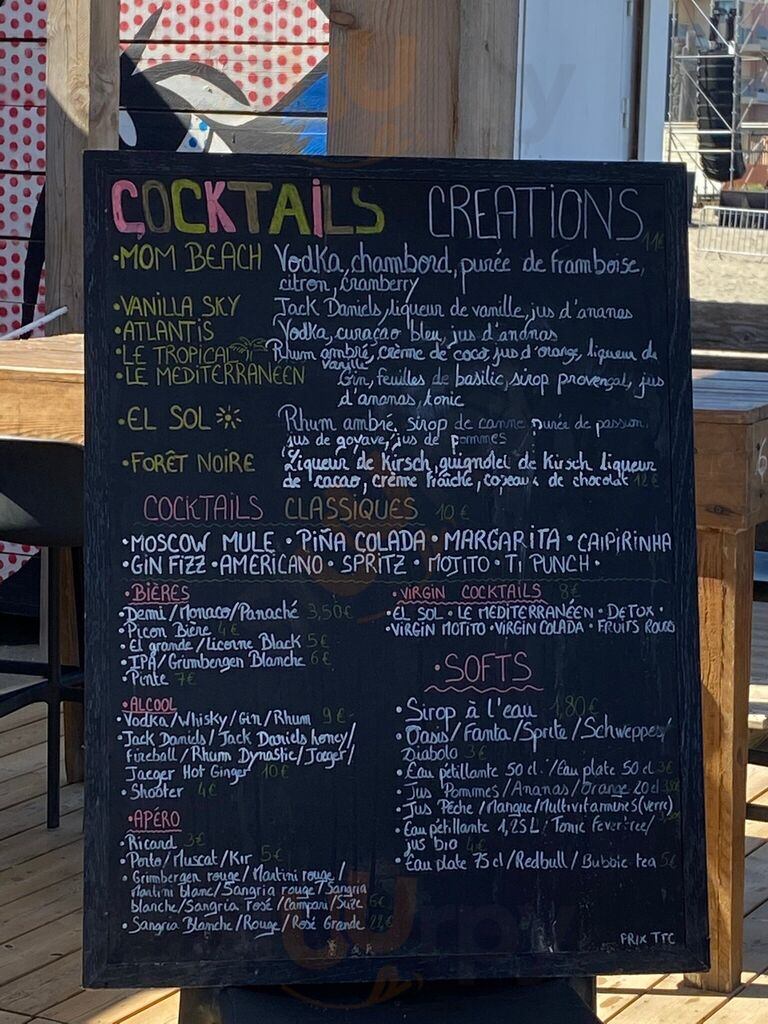 COCKTAILS CREATIONS 11€
•MOM BEACH Vodka, chambord, purée de framboise,
citron, cramberry
•VANILLA SKY Jack Daniels, liqueur de vanille, jus d'ananas
•ATLANTIS Vodka, curaçao bleu, jus d'ananas
•LE TROPICAL Rhum ambré, crème de coco, jus d'orange, liqueur de
vanille
•LE MEDITERRANÉEN Gin, feuilles de basilic, sirop provençal, jus
d'ananas, tonic
•EL SOL Rhum ambré, sirop de canne, purée de passion,
jus de goyave, jus de pommes
•FORÊT NOIRE Liqueur de Kirsch, guignolet de Kirsch, liqueur
de cacao, crème fraîche, copeaux de chocolat 12€
COCKTAILS CLASSIQUES 10€
•MOSCOW MULE •PIÑA COLADA •MARGARITA •CAIPIRINHA
•GIN FIZZ •AMÉRICANO •SPRITZ •MOJITO •TI PUNCH•
•BIÈRES
Demi/Monaco/Panaché 3,50€
•Picon Bière 4€
•El grande/Licorne Black 5€
•IPA/Grimbergen Blanche 6€
•Pinte 7€
•VIRGIN COCKTAILS 8€
•EL SOL •LE MEDITERRANÉEN •DETOX•
•VIRGIN MOJITO •VIRGIN COLADA •FRUITS ROUGES
•ALCOOL
•Vodka/Whisky/Gin/Rhum 9€
•Jack Daniels/Jack Daniels honey/
Fireball/Rhum Dynastie/Jaeger/
Jaeger Hot Ginger 10€
•Shooter 4€
•APÉRO
•Ricard 3€
•Porto/Muscat/Kir 5€
•Grimbergen rouge/Martini rouge/
Martini blanc/Sangria rouge/Sangria
blanche/Sangria rosé/Campari/Suze 6€
•Sangria Blanche/Rouge/Rosé Grande
•SOFTS
•Sirop à l'eau 1,80€
•Oasis/Fanta/Sprite/Schweppes/
Diabolo 3€
•Eau pétillante 50 cl /Eau plate 50 cl 3€
•Jus Pommes/Ananas/Orange 20cl
•Jus Pêche/Mangue/Multivitamines(verre)
•Eau pétillante 1,25L/Tonic Fever-tree/
jus bio 4€
•Eau plate 75 cl/Redbull/Bubble tea 5€
PRIX TTC